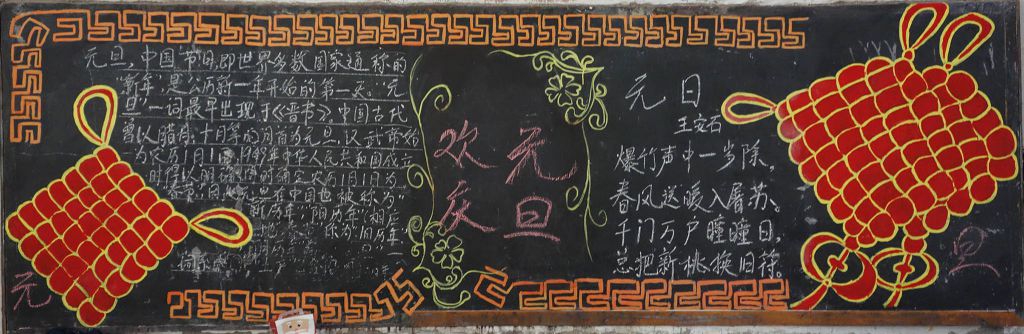 元旦,中国节日即世界多数国家通称的
"新年",是公历新一年开始的第一天。"元
旦"一词最早出现于《晋书》,中国古代
曾以腊月、十月等的月首为元旦,汉武帝始
为农历1月1日,1949年中华人民共和国成立
1月1日为
也被称为"
新历年","阳历年"。
欢庆
元旦
元日
王安石
爆竹声中一步除,
春风送暖入屠苏、
千门万户瞳瞳日,
总把新桃换旧符。
元
旦